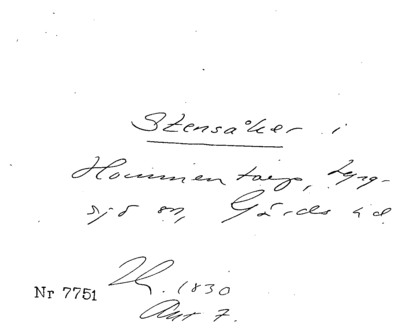 Stensåker i
Hommentorp, Lyng-
sjö sn, Gärds hd
Nr 7751
1830
Akt 7.